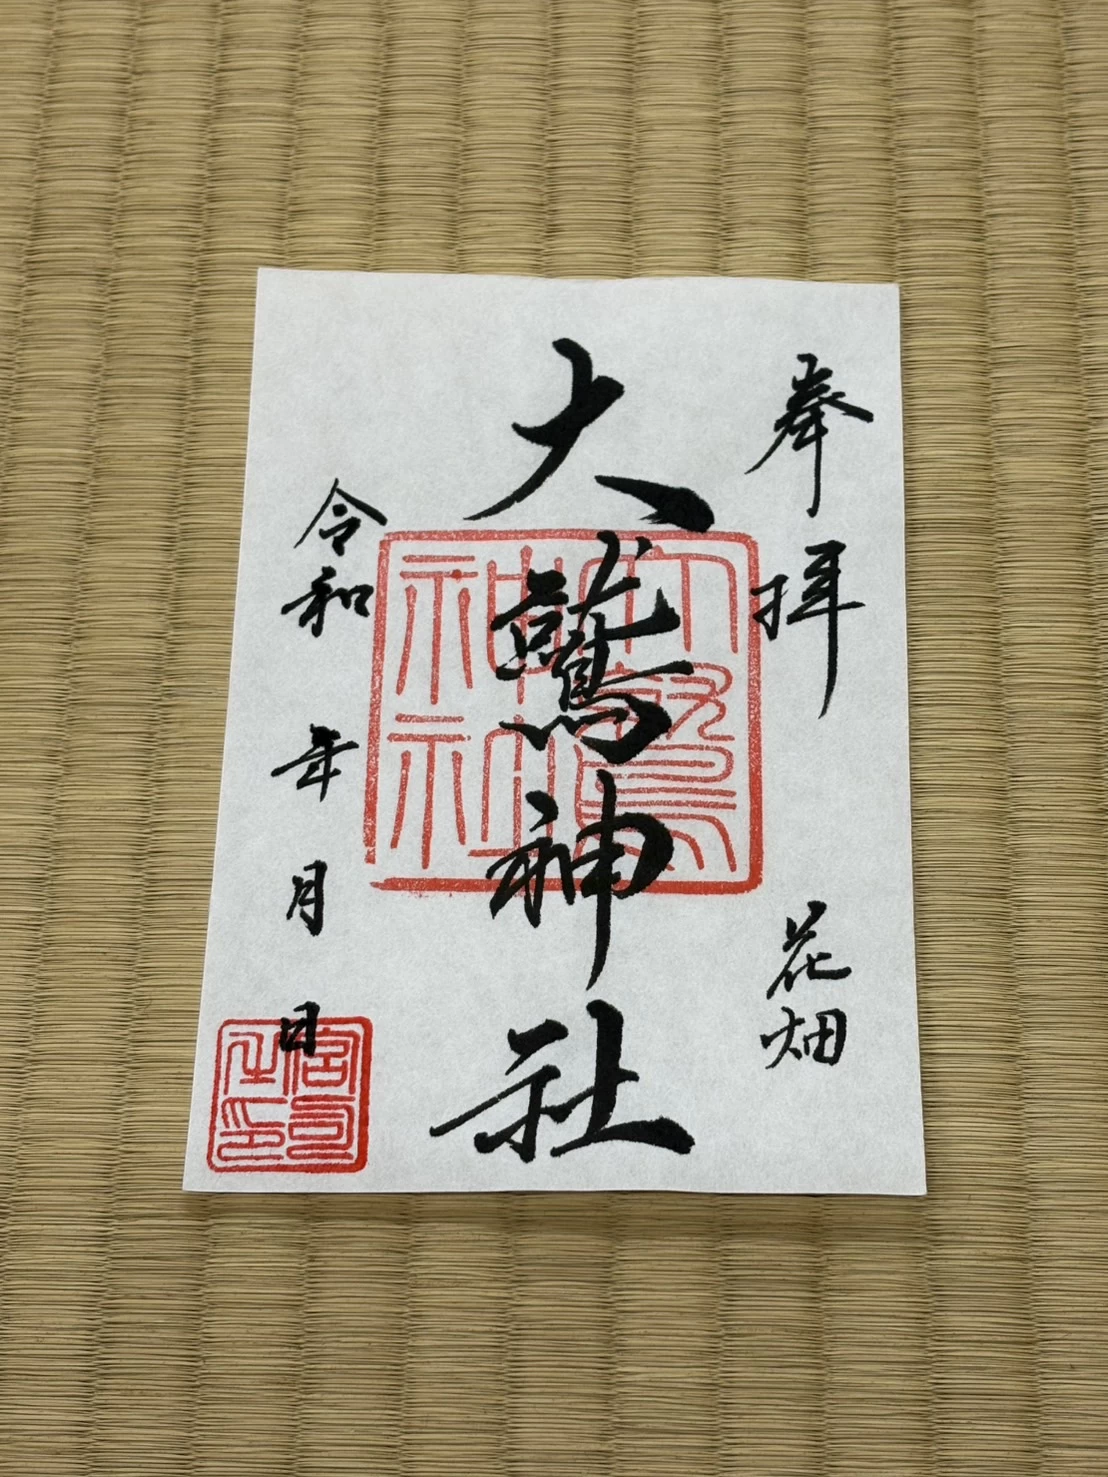 奉拝 花畑
大鷲神社
令和 年 月 日
大鷲神社
宮司之印